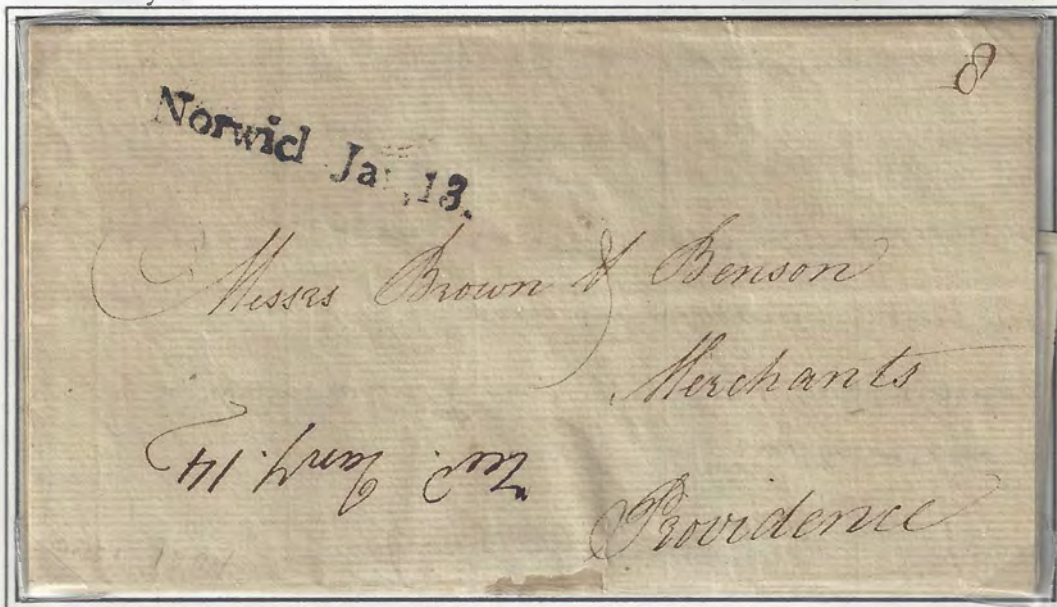 8
Norwich Jan. 13.
Messrs Brown & Benson
Merchants
Providence
Rec'd. Jany. 14